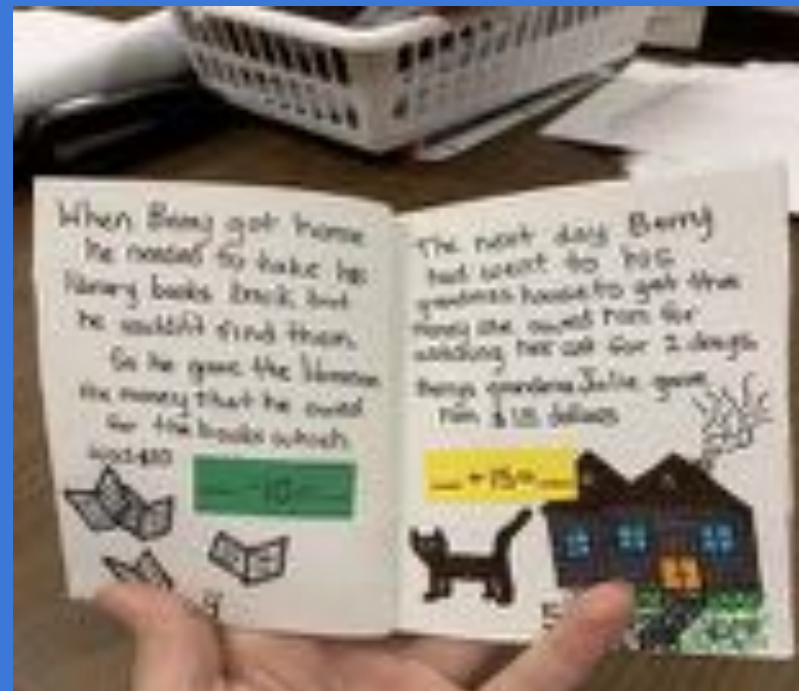 When Berry got home
he needed to take his
library books back but
he couldn't find them.
So he gave the librarian
the money that he owed
for the books which
was $10
__ -10=__
4
The next day Berry
had went to his
grandmas house to get the
money she owed him for
watching her cat for 2 days.
Berrys grandma Julie gave
him $15 dollars
__ +15=__
5